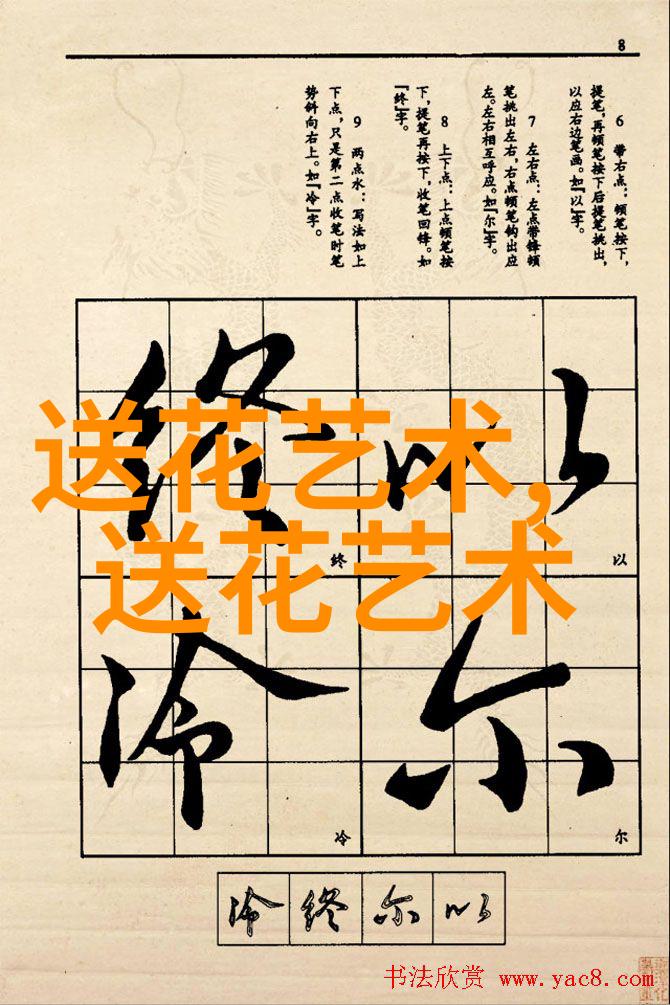 8
6 带右点：顿笔按下，
提笔，再顿笔按下后提笔挑出，
以应右边笔画。如『以』字。
7 左右点：左点带锋顿
笔挑出左右，右点顿笔钩出应
左。左右相互呼应。如『尔』字。
8 上下点：上点顿笔按
下，提笔再按下，收笔回锋。如
『终』字。
9 两点水：写法如上
下点，只是第二点收笔时笔
势斜向右上。如『冷』字。
以
以
尔
尔
终
终
冷
冷
送花艺术，
送花艺术
冷 终 尔 以
书法欣赏 www.yac8.com